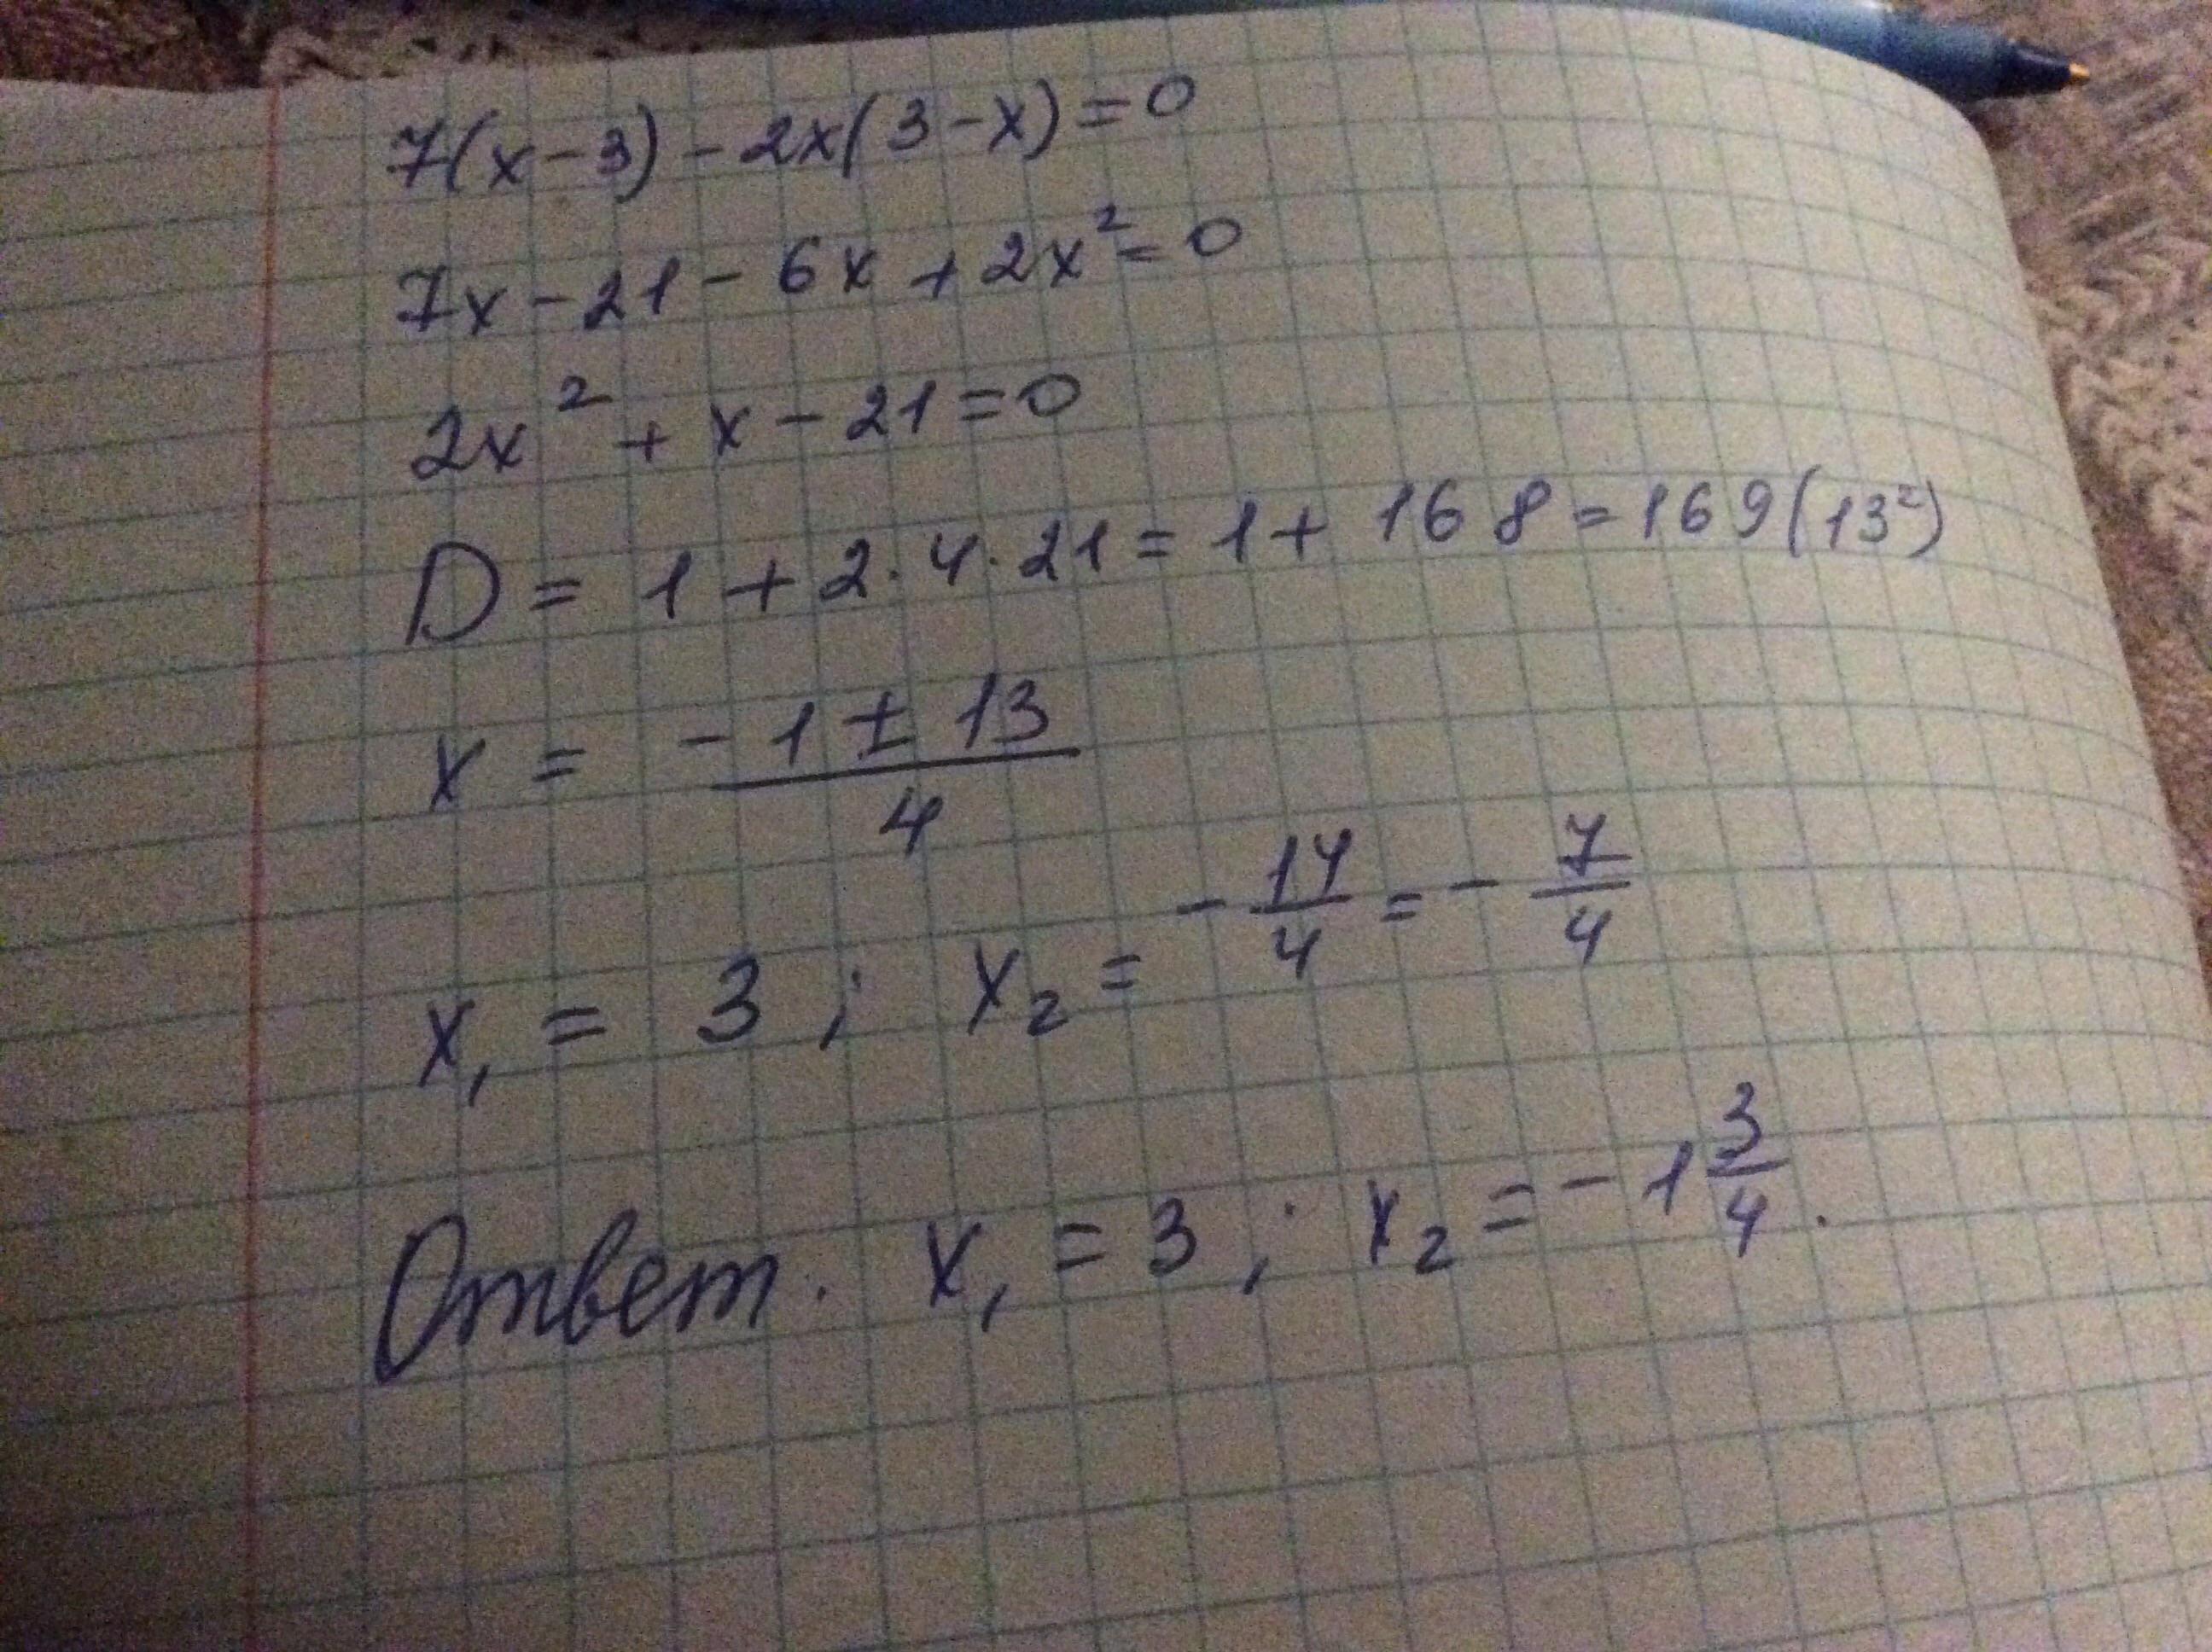 7(x-3)-2x(3-x)=0
7x-21-6x+2x²=0
2x²+x-21=0
D=1+2·4·21=1+168=169(13²)
x = (-1±13)/4
x₁ = 3; x₂ = -14/4 = -7/4
Ответ. x₁ = 3; x₂ = -1 3/4.